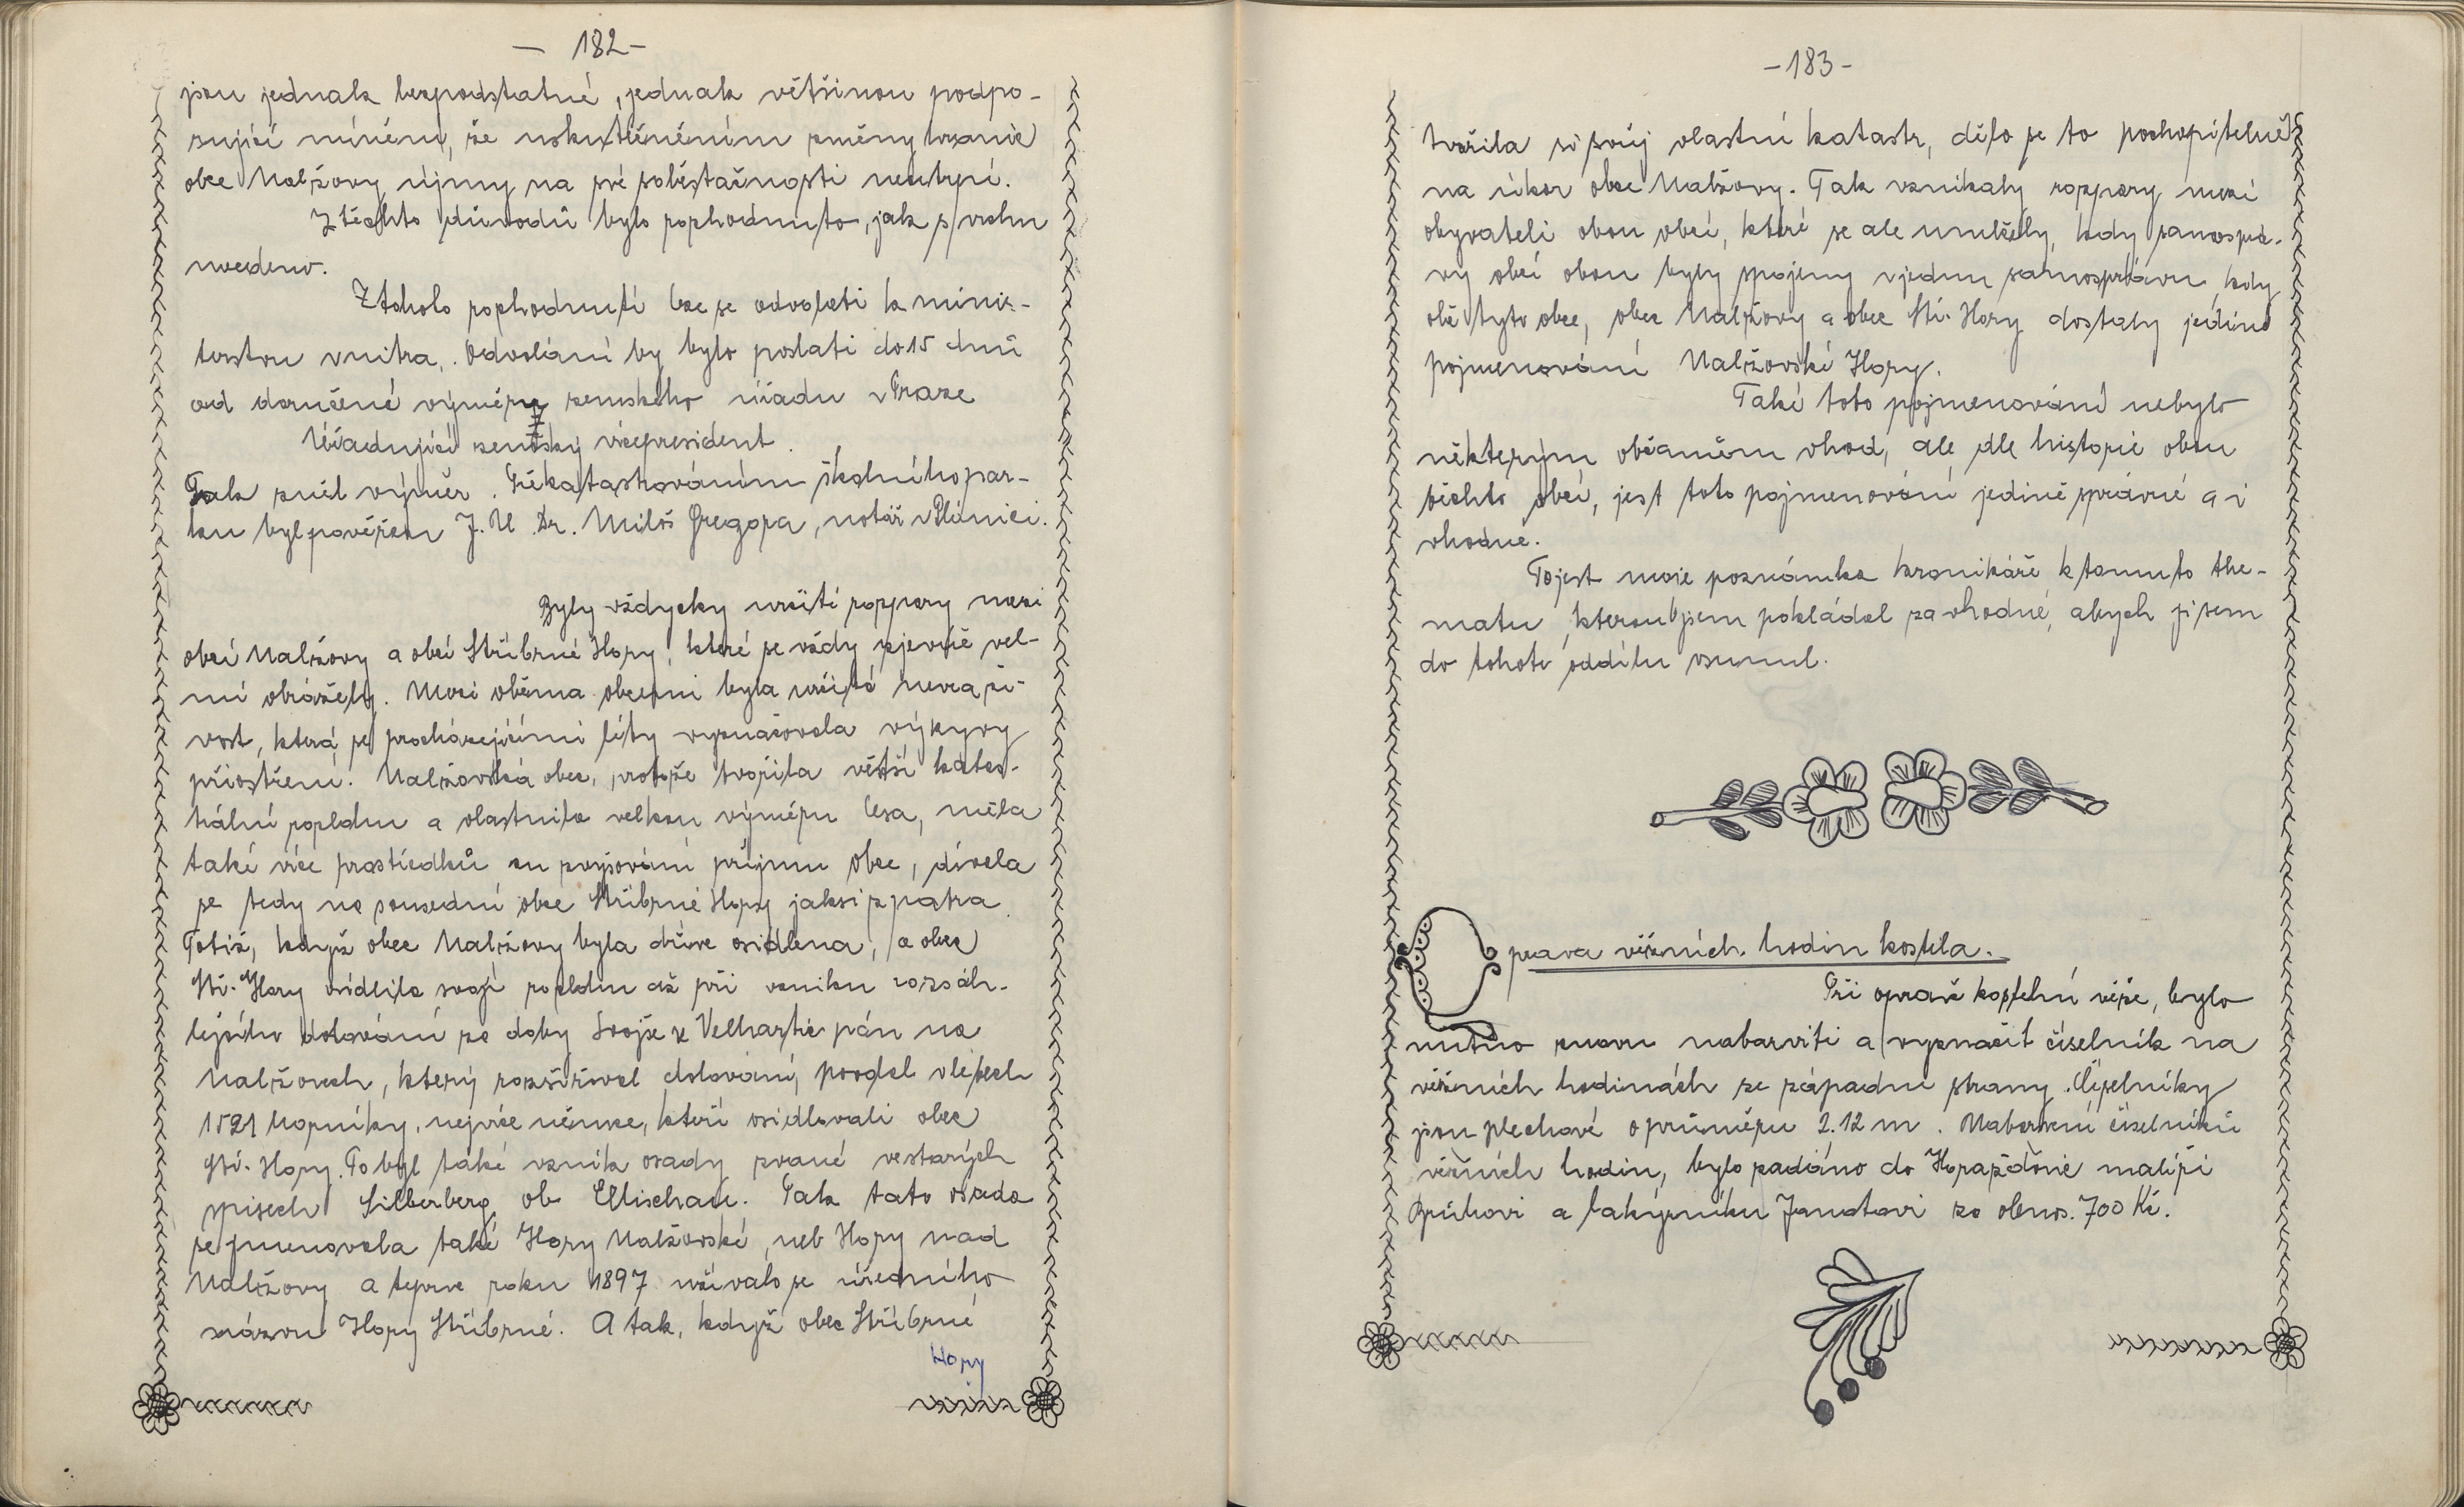 — 182 —
jsou jednak bezpodstatné, jednak většinou podpo-
rující mínění, že uskutečněním změny hranic
obce Nalžovy újmy na své soběstačnosti neutrpí.
Z těchto důvodů bylo rozhodnuto, jak s vrchu
uvedeno.
Z tohoto rozhodnutí lze se odvolati k minis-
terstvu vnitra. Odvolání by bylo poslati do 15 dnů
od doručené výměry zemského úřadu v Praze
Úřadující zemský vicepresident.
Tak zněl výměr. Překatastrováním školního par-
ku byl pověřen J. U. Dr. Miloš Gregora, notář v Plánici.
Byly vždycky určité rozpory mezi
obcí Nalžovy a obcí Stříbrné Hory, které se vždy zjevně vel-
mi obrážely. Mezi oběma obcemi byla určitá nevraži-
vost, která se procházejícími léty vyznačovala výkyvy
přiostření. Nalžovská obec, protože tvořila větší katas-
trální rozlohu a vlastnila velkou výměru lesa, měla
také více prostředků ku zvyšování příjmu obce, dívala
se tedy na sousední obec Stříbrné Hory jaksi z patra.
Totiž, když obec Nalžovy byla dříve osídlena, a obec
Stř. Hory osídlila svojí rozlohu až při vzniku rozsáh-
lejšího dolování za doby Svojše z Velhartic pán na
Nalžovech, který rozšiřoval dolování, pozval v létech
1521 horníky, nejvíce němce, kteří osidlovali obec
Stř. Hory. To byl také vznik osady zvané ve starých
spisech Silberberg ob Ellischau. Tak tato osada
se jmenovala také Hory Nalžovské, neb Hory nad
Nalžovy a teprve roku 1897 užívalo se úředního
názvu Hory Stříbrné. A tak, když obec Stříbrné
Hory
- 183 -
tvořila si svůj vlastní katastr, dělo se to pochopitelně
na úkor obce Nalžovy. Tak vznikaly rozpory mezi
obyvateli obou obcí, které se ale umlčely, kdy samosprá-
vy obcí obou byly spojeny v jednu samosprávu, kdy
obě tyto obce, obec Nalžovy a obec Stř. Hory dostaly jediné
pojmenování Nalžovské Hory.
Také toto pojmenování nebylo
některým občanům vhod, ale dle historie obou
těchto obcí, jest toto pojmenování jedině správné a i
vhodné.
To jest moje poznámka kronikáře k tomuto the-
matu, kterou jsem pokládal za vhodné, abych ji sem
do tohoto oddílu vsunul.
Oprava věžních hodin kostela.
Při opravě kostelní věže, bylo
nutno znovu nabarviti a vyznačit číselník na
věžních hodinách ze západní strany. Číselníky
jsou plechové o průměru 2.12 m. Nabarvení číselníků
věžních hodin, bylo zadáno do Horažďovic malíři
Brůhovi a lakýrníku Janotovi za obnos. 700 Kč.